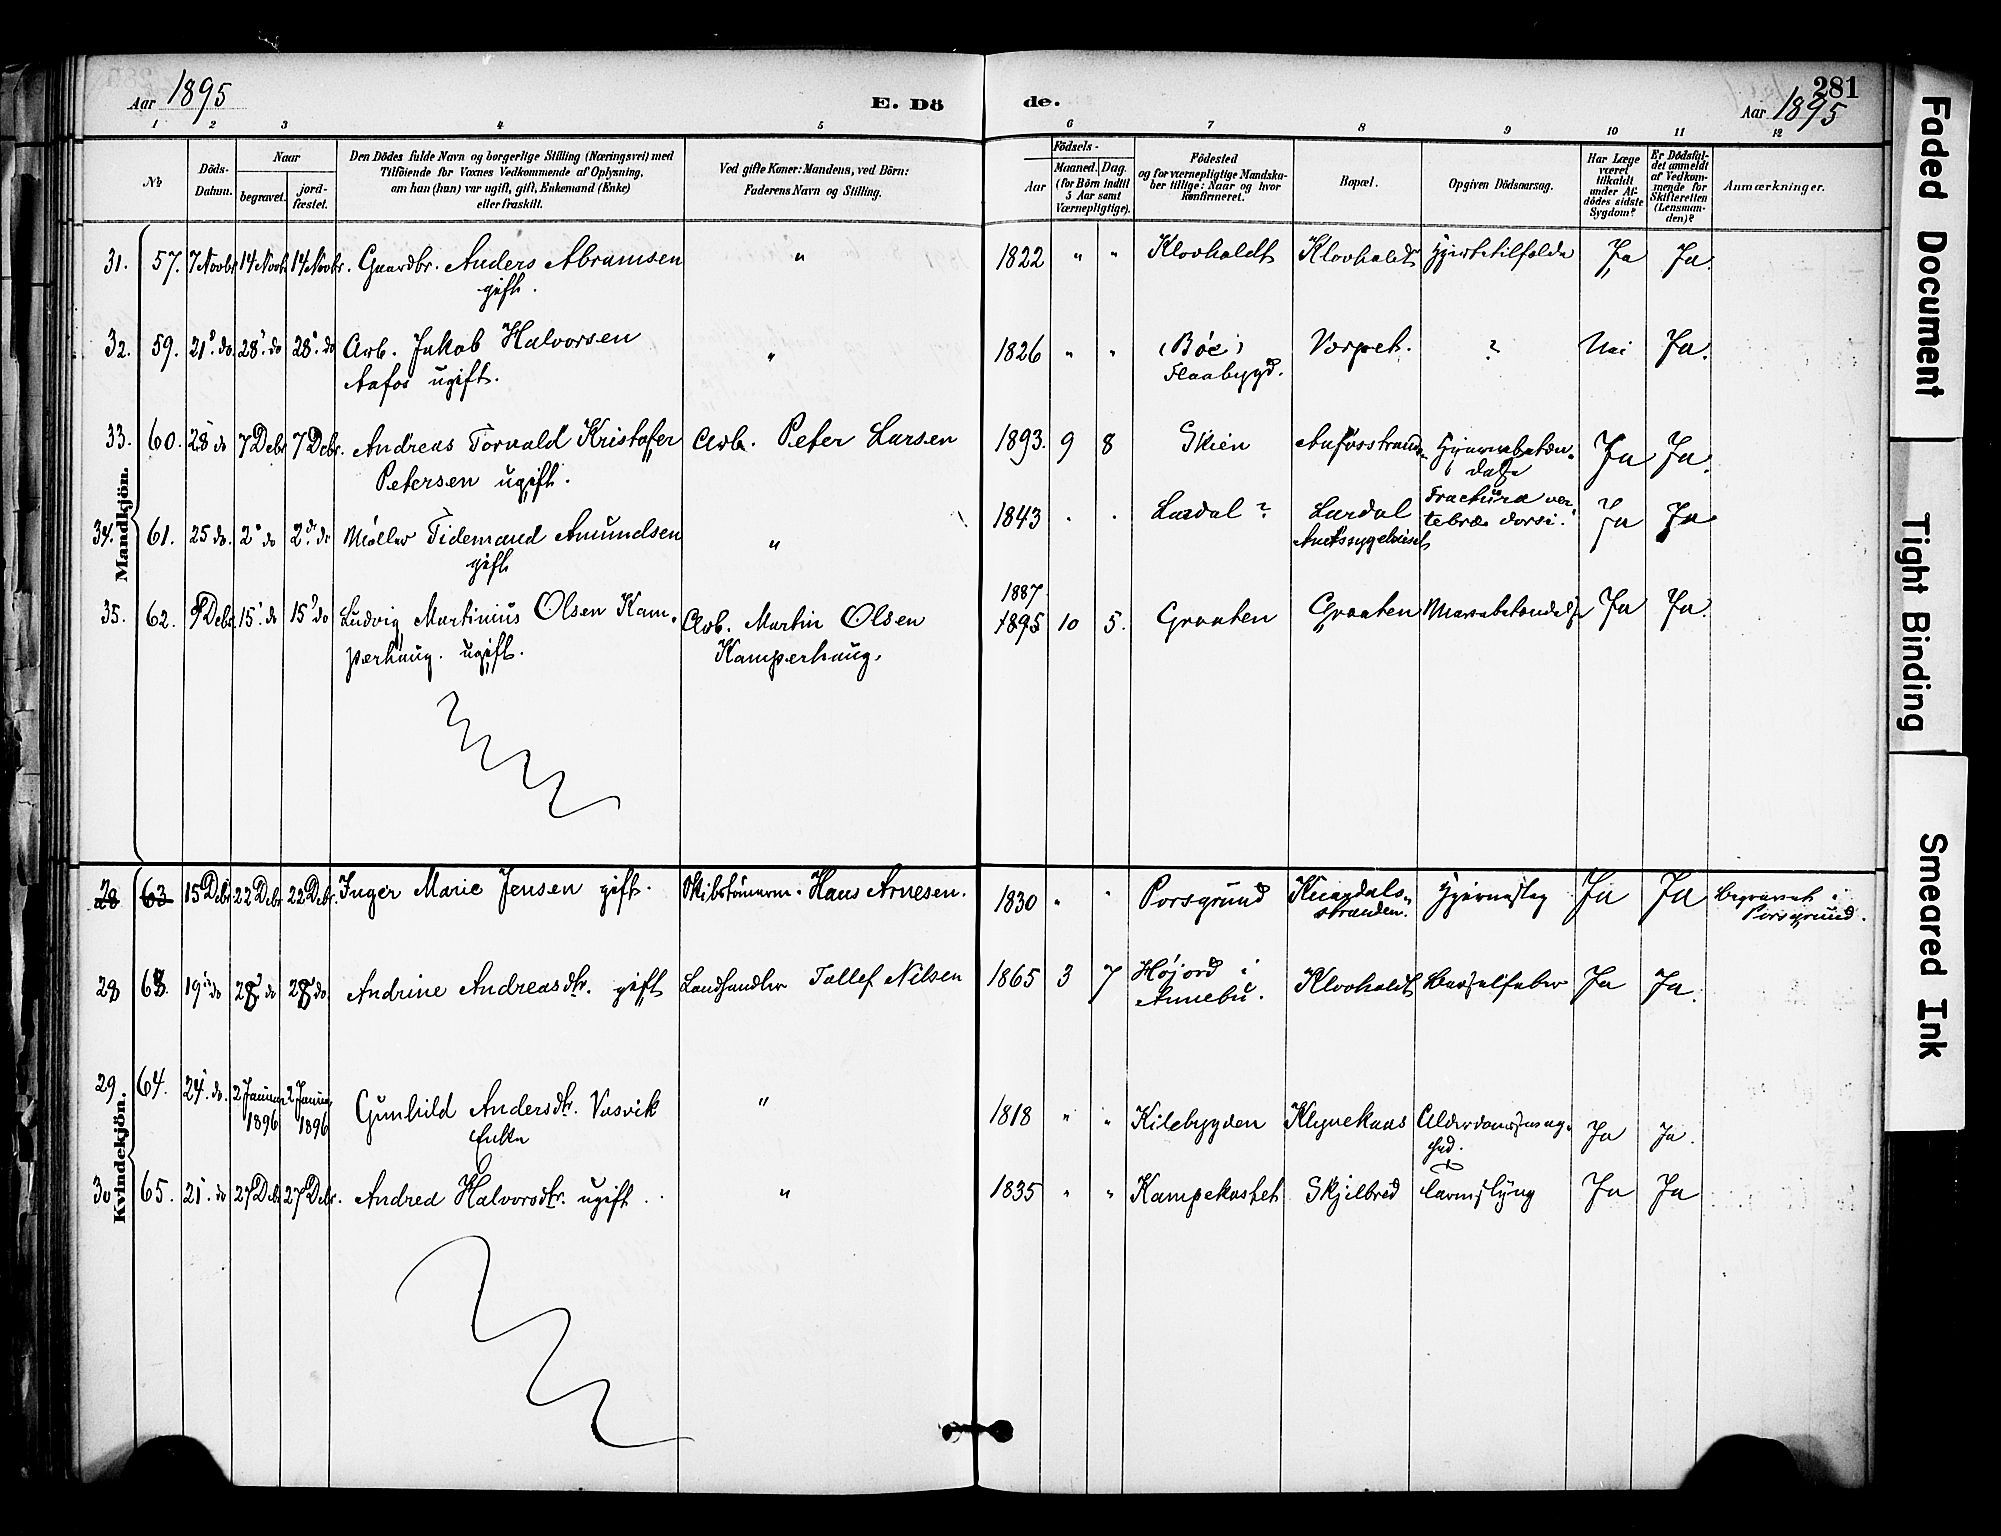 281
Aar 1895
E. Dö
de.
Aar 1895
1 2 3 4 5 6 7 8 9 10 11 12
No
Döds-
Datum.
Naar
begravet.
jord-
fæstet.
Den Dödes fulde Navn og borgerlige Stilling (Næringsvei) med
Tilföiende for Voxnes Vedkommende af Oplysning,
om han (hun) var ugift, gift, Enkemand (Enke)
eller fraskilt.
Ved gifte Koner: Mandens, ved Börn:
Faderens Navn og Stilling.
Födsels-
Aar
Maaned. Dag.
(for Börn indtil
5 Aar samt
Værnepligtige).
Födested
og for værnepligtige Mandska-
ber tillige: Naar og hvor
konfirmeret.
Bopæl.
Opgiven Dödsaarsag.
Har Læge
været
tilkaldt
under Af-
dödes sidste
Sygdom?
Er Dödsfal-
det anmeldt
af Vedkom-
mende for
Skifteretten
(Lensman-
den)?
Anmærkninger.
Mandkjön.
31. 57. 7 Novbr 14 Novb 14 Novbr. Gaardbr. Anders Abramsen " 1822 " " Klovholdt Klovholdt Hjertetilfælde Ja Ja.
gift.
32. 59. 21. do. 28. do 28. do Arb. Jakob Halvorsen " 1826 " " (Böe) Vorpet. ? Nei Ja.
Aafos ugift. Flaabygd.
33. 60. 28 do 7 Debr 7 Debr. Andreas Torvald Kristofer Arb. Peter Larsen 1893. 9 8 Skien Aafosstrand Hjernebetæn- Ja Ja.
Petersen ugift. delse
34. 61. 25 do. 2. do 2. do Møller Tidemand Amundsen " 1843 . . Lardal ? Lardal Fractura ver- Ja Ja
gift Amtssygehuset tebræ dorsi.
1887
35. 62. 9 Debr. 15. do 15. do Ludvig Martinius Olsen Kam- Arb. Martin Olsen 1895 10 5. Graaten Graaten Mavebetændelse Ja Ja.
perhaug. ugift. Kamperhaug.
Kvindekjön.
28 63 15 Debr 22 Debr 22 Debr. Inger Marie Jensen gift. Skibstømerm. Hans Arnesen. 1830 " " Porsgrund Knardals- Hjerneslag Ja Ja begravet i
stranden. Porsgrund.
28 63. 19. do 28. do 28. do Andrine Andreasdtr. gift Landhandler Tallef Nilsen 1865 3 7 Højord i Klovholdt Barselfeber Ja Ja.
Annebu.
29 64. 24. do. 2 Januar 2 Januar Gunhild Andersdtr. Vasvik " 1818 " " Kilebygden Klynekaas Alderdomssvag- Ja Ja.
1896 1896 Enke hed.
30 65. 21. do 27 Debr 27 Debr. Andrea Halvorsdtr. ugift. " 1835 " " Kampekastet Skjelbred Tarmslyng Ja Ja
Faded Document
Tight Binding
Smeared Ink